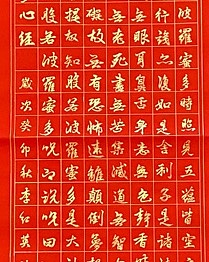 波羅蜜多時照見五蘊皆空
行識亦復如是舍利子是諸
無眼耳鼻舌身意無色聲香
無老死盡無苦集滅道無智
礙故無有恐怖遠離顛倒夢
提故知般若波羅蜜多是大
般若波羅蜜多咒即說咒曰
心經
歲次癸卯秋李紅英